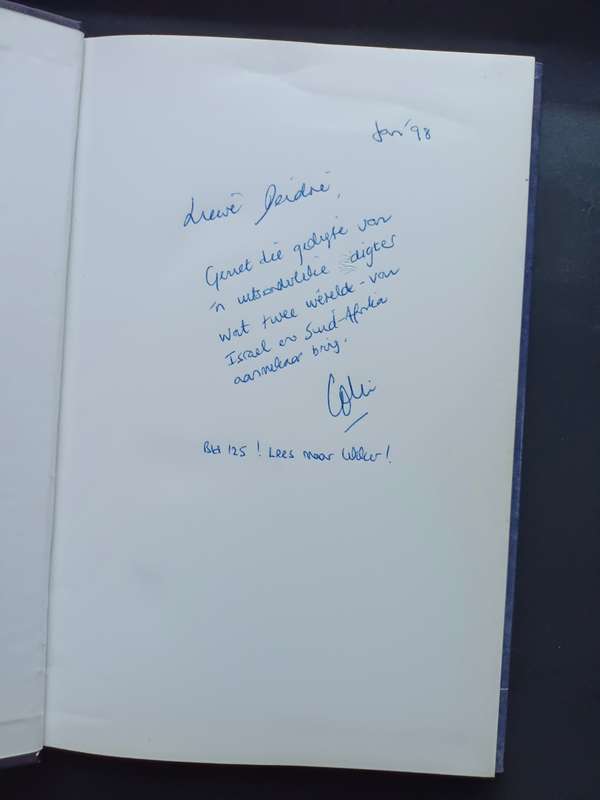 Jan '98
Liewe Deidré,
Geniet die gedigte van
'n uitsonderlike digter
wat twee wêrelde - van
Israel en Suid-Afrika
aanmekaar bring.
Bl 125! Lees maar lekker!